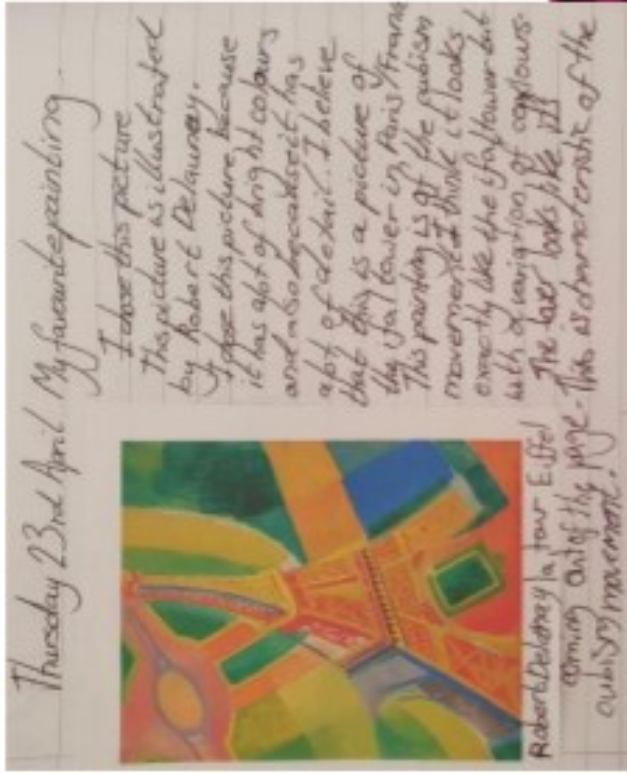 Thursday 23rd April My favourite painting.
I chose this picture
This picture is illustrated
by Robert Delauney.
I chose this picture because
it has alot of bright colours
and also because it has
alot of detail. I believe
that this is a picture of
the ifal tower in Paris, France
This painting is of the qubism
movement. I think it looks
exactly like the ifal tower but
with a variation of coulours.
The tower looks like it's
Robert Deloney la tour Eiffel
coming out of the page. This is characteristic of the
qubism movement.